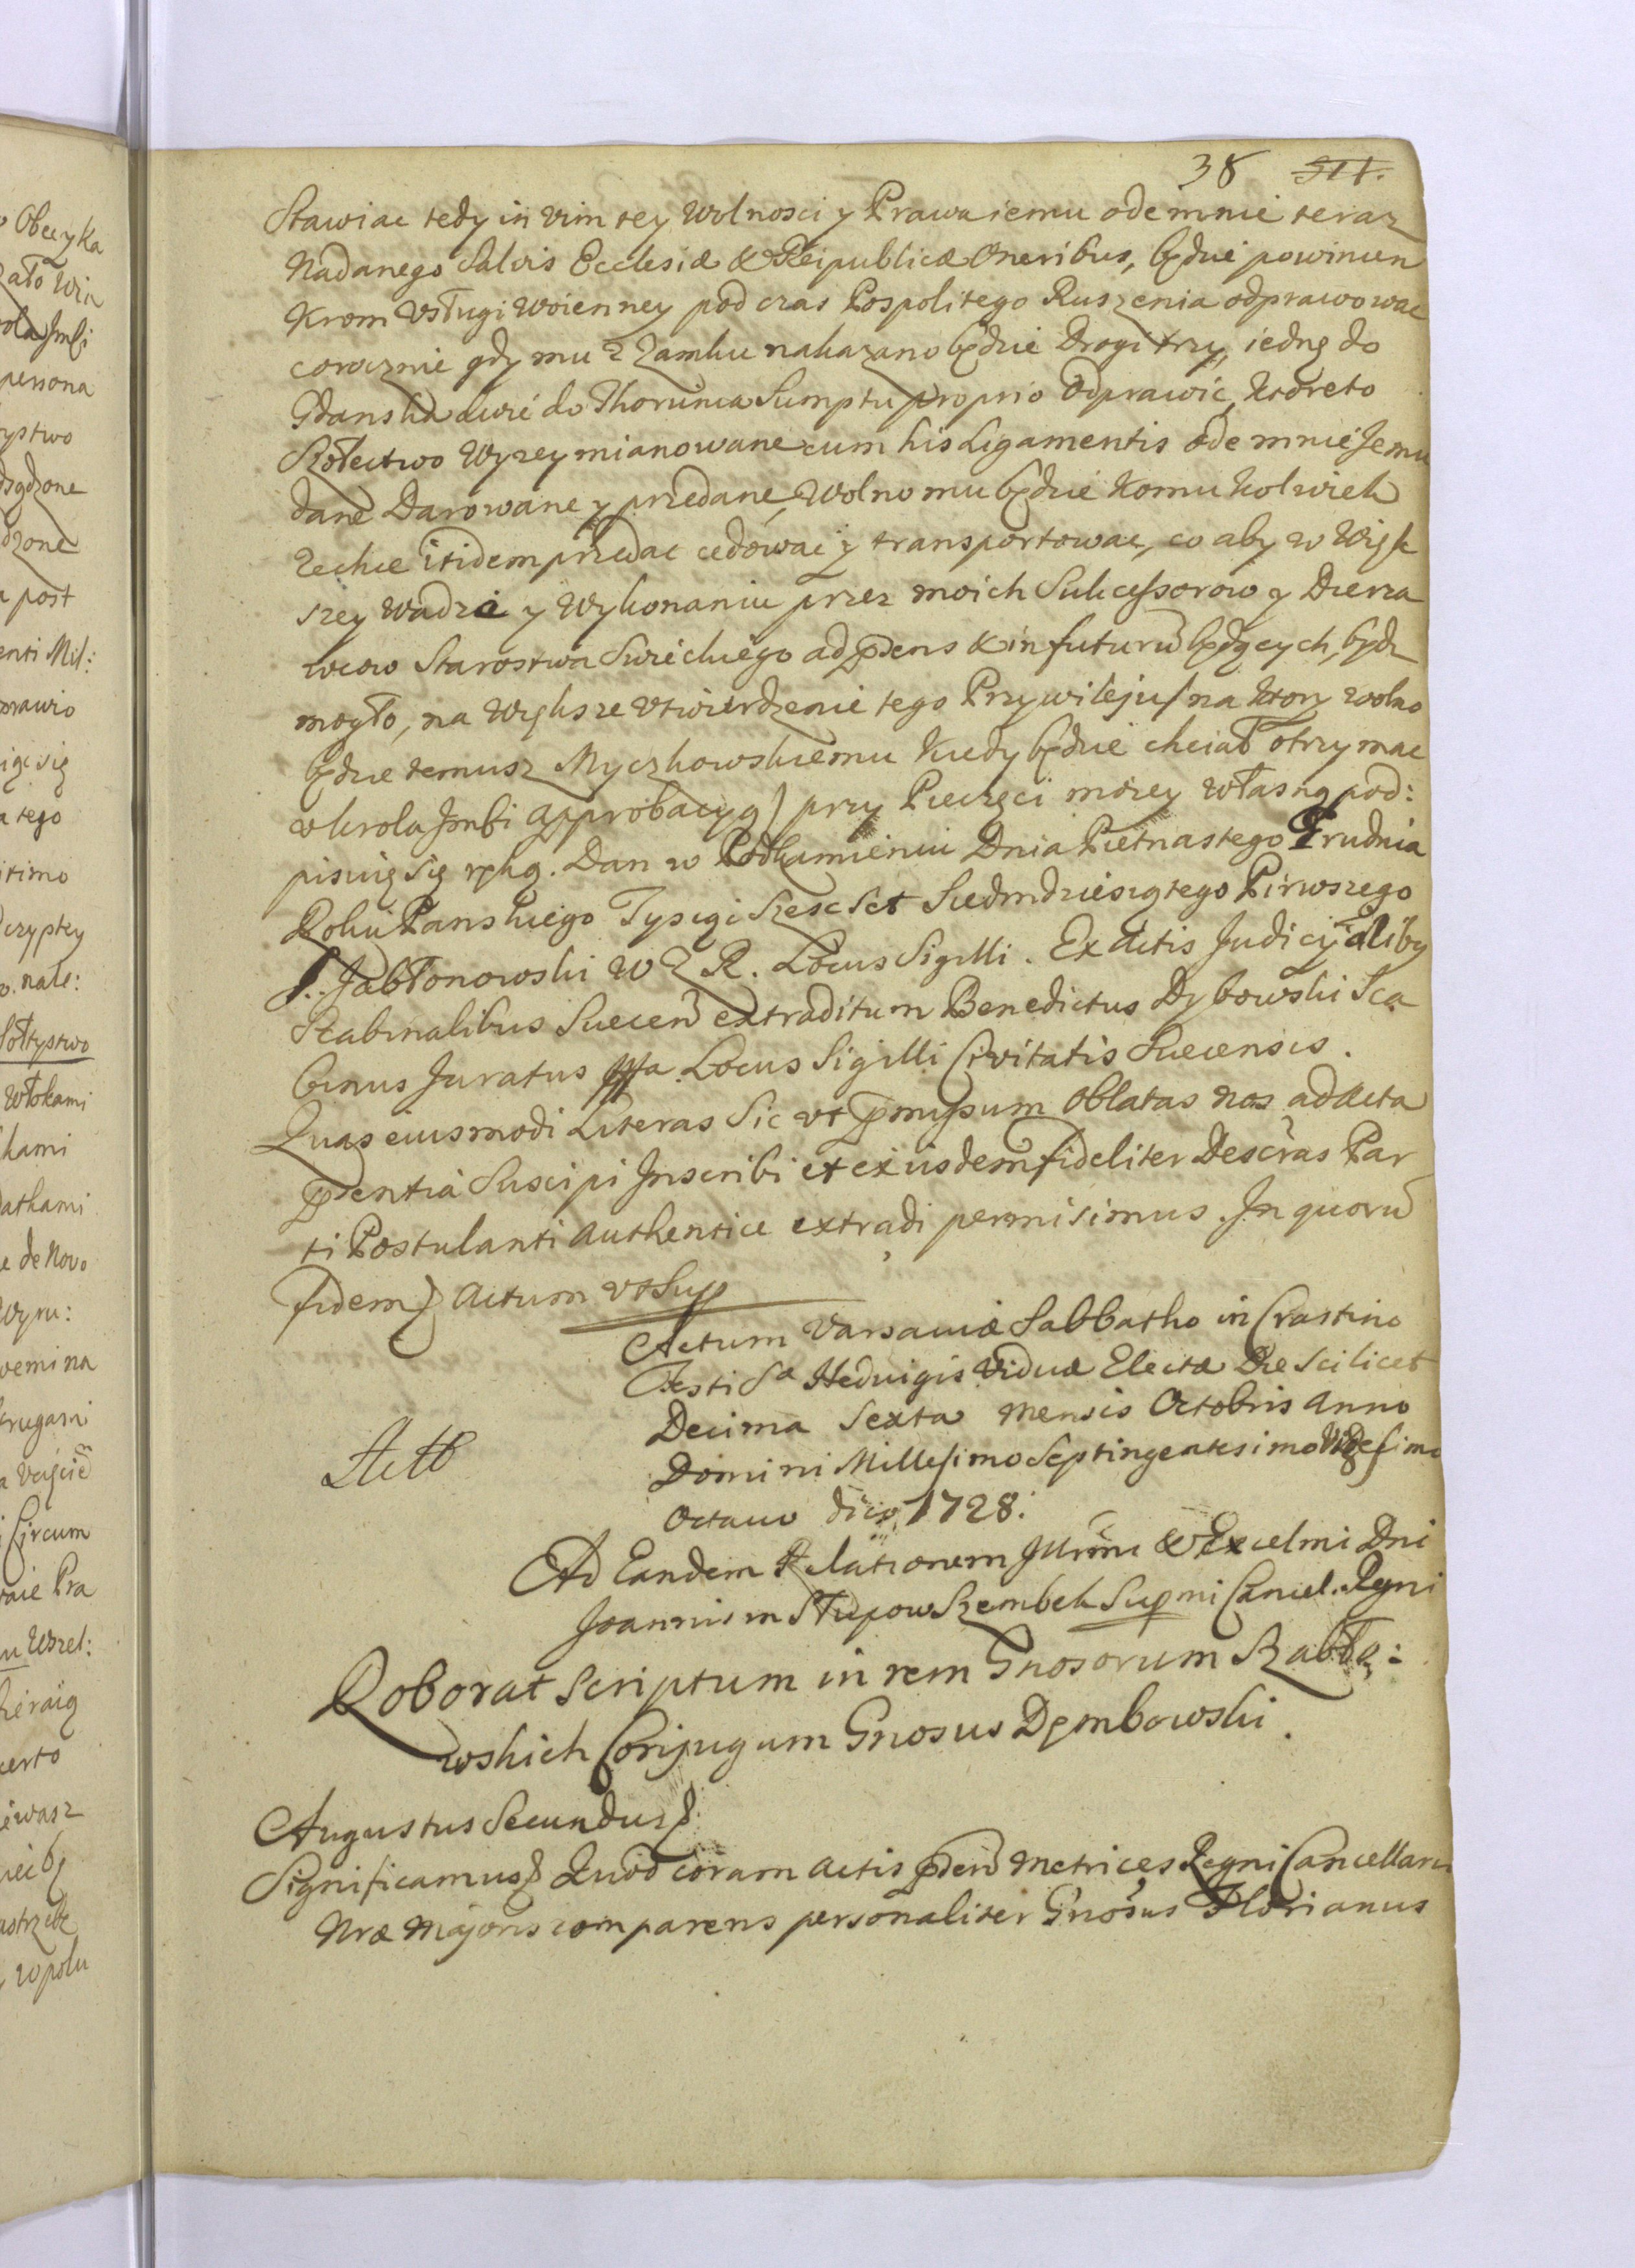 38 511.
Stawiac tedy in vim tey Wolnosci y Prawa iemu odemnie teraz
Nadanego Salvis Ecclesiæ & Reipublicæ Oneribus, będzie powinien
Krom Usługi woienney pod czas Pospolitego Ruszenia odprawowac
corocznie gdy mu z Zamku nakazano będzie Drogi trzy, iednę do
Gdanska dwie do Thorunia Sumptu proprio Odprawic, Ktoreto
Szołectwo Wyzey mianowane cum his Ligamentis ode mnie Jemu
dane Darowane y przedane, Wolno mu będzie Komu Kolwiek
zechce itidem przedac cedowac y transportowac, co aby w Więk
szey Wadze y Wykonaniu przez moich Sukcessorow y Dierza
wcow Starostwa Swieckiego ad p̄dens & in futurū będących, bydz
mogło, na Większe Utwierdzenie tego Przywileju / na Ktory wolno
będzie temusz Myczkowskiemu Kiedy będzie chciał otrzymac
w Krola Jmści Approbacyą / przy Pieczęci moiey własną pod:
pisuię Się ręką. Dan w Podkamieniu Dnia Pietnastego Grudnia
Roku Panskiego Tysiąc Szesc Set Siedmdziesiątego Pirwszego
S. Jabłonowski W Z R. Locus Sigilli. Ex Actis Judicÿalibq
Scabinalibus Suecen̄ extraditum Benedictus Dybowski Sca
binus Juratus mpa Locus Sigilli Civitatis Suecensis.
Quas eiusmodi Literas Sic ut p̄missum Oblatas nos ad Acta
p̄dentia Suscipi Inscribi et ex iisdem fideliter Descr̄as Par
ti Postulanti Authentice extradi permisimus. In quorū
fidem & Actum ut Sup
Actum Varsaviæ Sabbatho in Crastino
Festi Sæ Hedvigis Viduæ Electæ Die Scilicet
Decima Sexta Mensis Octobris Anno
Domini Millesimo Septingentesimo Vigesimo
Octavo dico 1728.
Ad Eandem Relationem Jllr̄mi & Excelmi Dni
Joannis in Słupow Szembek Sup̄mi Cancel. Regni
Roborat Scriptum in rem Gnosorum Szabłę:
wskich Conjugum Gnosus Dęmbowski.
Augustus Secundus &
Significamus & Quod coram Actis p̄den̄ Metrices Regni Cancellariæ
Nræ Majoris comparens personaliter Gnosus Florianus